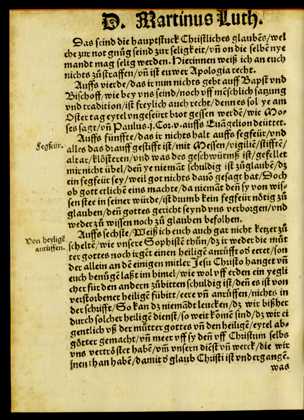 D. Martinus Luth.
Das seind die hauptstuck Christliches glaubēs/wel
che zur not gnůg seind zur seligkeit/vñ on die selbē nye
mandt mag selig werden. Hierinnen weiß ich an euch
nichts zůstraffen/vñ ist euwer Apologia recht.
Auffs vierde/das ir nun nichts gebt auff Bapst vñ
Bischoff/wie bey vns seind/noch vff mēschlich satzung
vnd tradition/ist freylich auch recht/denn es sol ye am
Oster tag eytel vngeseürt brot gessen werdē/wie Mo
ses sagt/vñ Paulus .j. Cor.v. auffs Euāgelion deüttet.
Auffs fünffte/das ir nichts halt auffs fegfeür/vnd
alles das drauff gestifft ist/mit Messen/vigiliē/stifftē/
altar/klöstern/vnd was des geschwürmß ist/gefellet
mir nicht übel/deñ ye niemādt schuldig ist zůglaubē/dz
ein fegfeür sey/weil got nichts dauō gesagt hat/Doch
ob gott erlich eins machte/da niemāt deñ sy von wis-
sen/ist dumb kein fegfeür nötig zů
glauben/deñ gottes gericht seynd vns verborgen/vnd
weder zů wissen noch zů glauben befolhen.
Fegfeür.
Auffs sechste/Weiß ich euch auch gar nicht ketzer zů
scheltē/wie vnsere Sophistē thůn/dz ir weder die můt
ter gottes noch irgēt einen heiligē anrüfft oď eret/son
der allein an dē einigen mitler Jesu Christo hanget vñ
euch benügē laßt im himel/wie wol vff erden ein yegli
cher für den andern zůbitten schuldig ist/deñ es ist von
verstorbener heiligē fürbit/eere vñ anrüffen/nichts in
der schrifft/So kan dz niemādt leucken/dz wir bißher
durch solcher heiligē dienst/so weit komē sind/dz wir ei
gentlich vß der můtter gottes vñ den heiligē/eytel ab-
götter gemacht/vñ meer vff sy deñ vff Christum selbs
vns vertröstet habē/vm̄ vnsern diēst vñ werck/die wir
inen than habē/damit ď glaub Christi ist vndergangē.
Von heyligē
anrüffen.
was